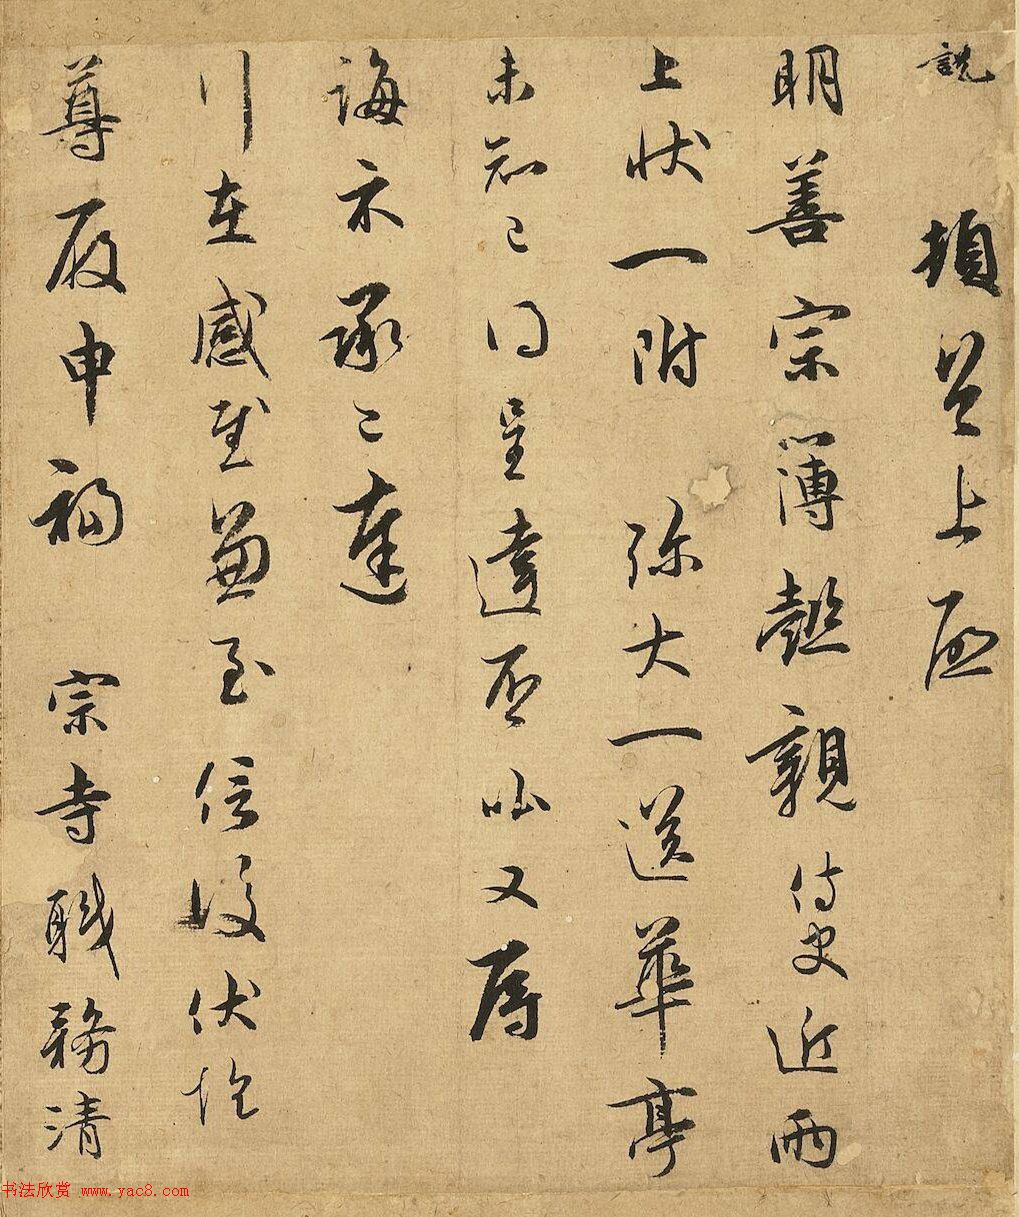 說 頓首上啟
明善宗簿懿親侍史近兩
上狀一附 弥大一送華亭
未知已得呈達否昨又辱
誨示承已達
行在感慰兼至信後伏惟
尊履申福 宗寺職務清
书法欣赏 www.yac8.com